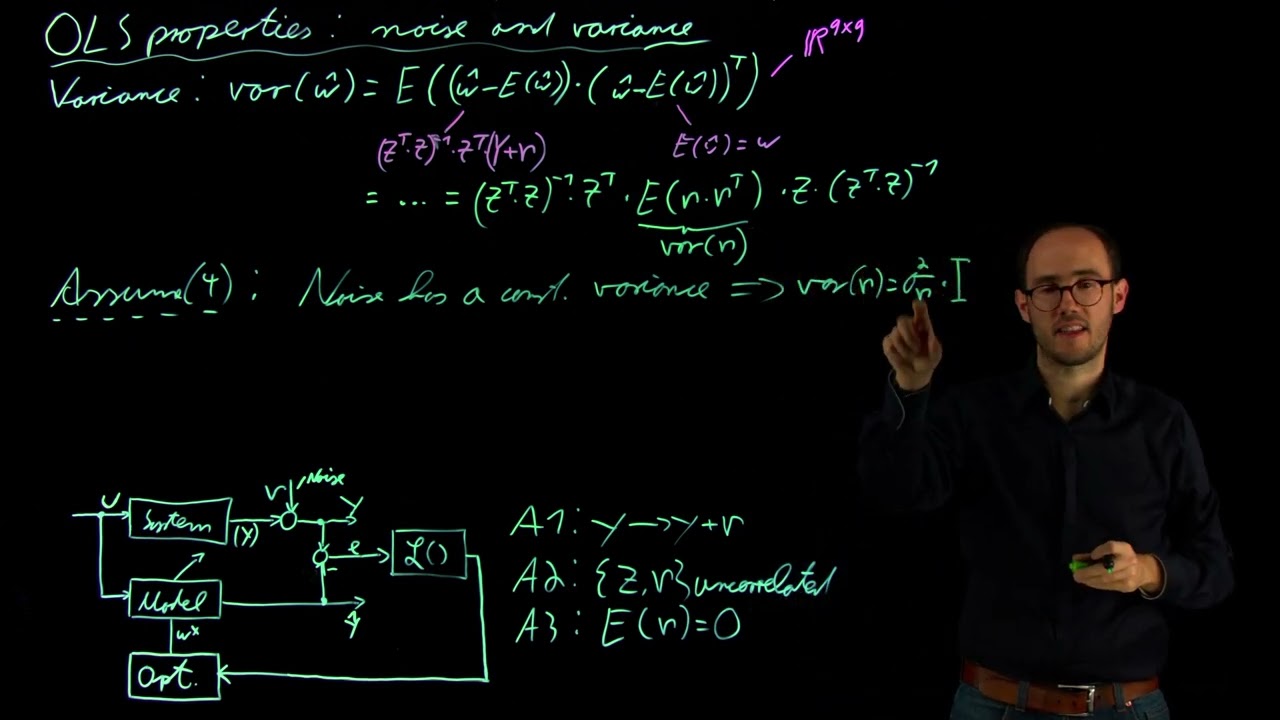 OLS properties: noise and variance
ℝ^{q×q}
Variance: var(ŵ) = E((ŵ-E(ŵ))·(ŵ-E(ŵ))^T)
(z^T·z)^{-1}·z^T·(y+r)
E(ŵ)=w
= ... = (z^T·z)^{-1}·z^T·E(r·r^T)·z·(z^T·z)^{-1}
var(r)
Assume(4): Noise has a const. variance => var(r)=σ_r^2·I
Noise
U
r
y
System
(y)
e
L()
-
Model
ŷ
w*
Opt.
A1: y → y+r
A2: {z,r} uncorrelated
A3: E(r)=0